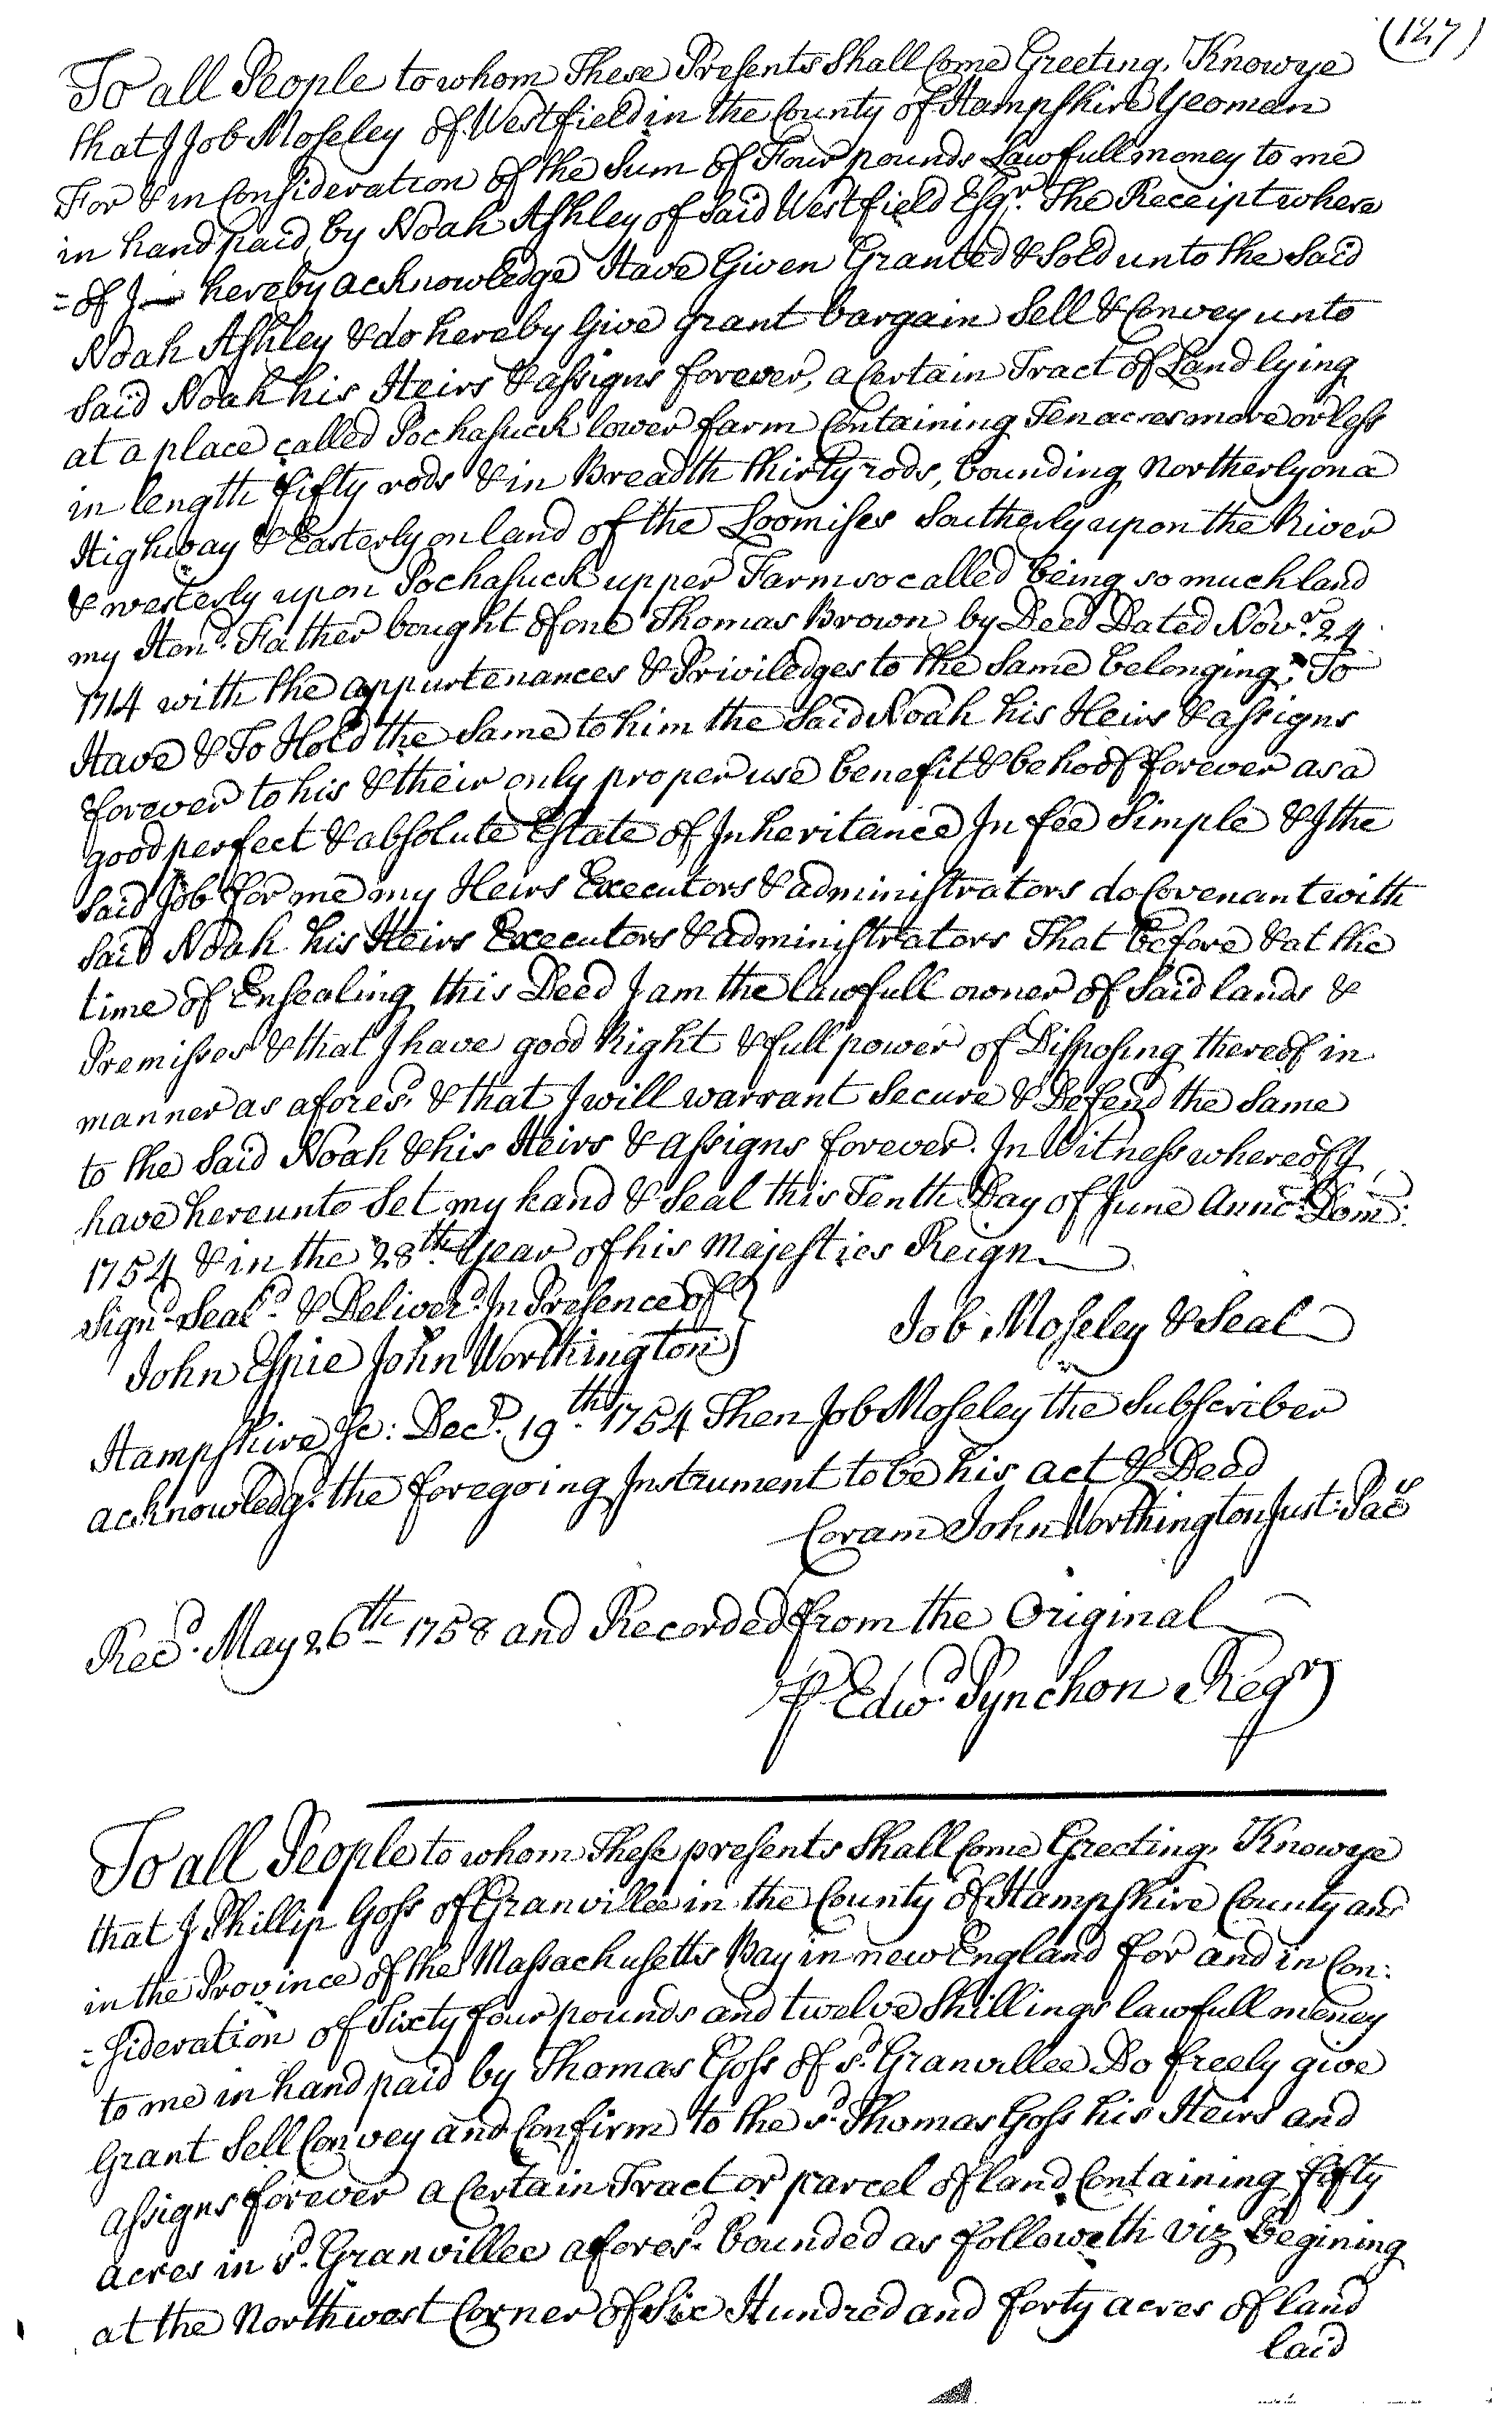 (127)
To all People to whom These Presents Shall Come Greeting, Know ye
that I Job Moseley of Westfield in the County of Hampshire Yeoman
For & in Consideration of the Sum of Four pounds Lawfull money to me
in hand paid by Noah Ashley of Said Westfield Esqr. The Receipt where
=of I hereby acknowledge Have Given Granted & Sold unto the Said
Noah Ashley & do hereby Give grant bargain Sell & Convey unto
Said Noah his Heirs & assigns forever, a Certain Tract of Land lying
at a place called Pochasuck lower farm Containing Ten acres more or less
in length fifty rods & in Breadth thirty rods, bounding Northerly on a
Highway & Easterly on land of the Loomises Southerly upon the River
& westerly upon Pochasuck upper Farm so called being so much land
my Hond. Father bought of one Thomas Brown by Deed Dated Novr. 24
1714 with the appurtenances & Priviledges to the Same belonging. To
Have & To Hold the Same to him the Said Noah his Heirs & assigns
forever to his & their only proper use benefit & behoof forever as a
good perfect & absolute Estate of Inheritance In fee Simple & I the
Said Job for me my Heirs Executors & administrators do Covenant with
Said Noah his Heirs Executors & administrators That before & at the
time of Ensealing this Deed I am the lawfull owner of Said lands &
Premisses & that I have good Right & full power of Disposing thereof in
manner as afores. & that I will warrant Secure & Defend the Same
to the Said Noah & his Heirs & assigns forever. In Witness whereof I
have hereunto Set my hand & Seal this Tenth Day of June Anno: Dom:
1754 & in the 28th. Year of his Majesties Reign
Signd. Seald. & Deliverd. In Presence of }
Job Moseley & Seal
John Espie John Worthington }
Hampshire Sc: Decr. 19th. 1754 Then Job Moseley the Subscriber
acknowledgd. the foregoing Instrument to be his act & Deed
Coram John Worthington Just: Pacs
Recd. May 26th 1758 and Recorded from the Original
P Edwd. Pynchon Regr
To all People to whom These presents Shall Come Greeting, Know ye
that I Phillip Goss of Granvillee in the County of Hampshire County and
in the Province of the Massachusetts Bay in new England for and in Con:
=sideration of Sixty four pounds and twelve Shillings lawfull money
to me in hand paid by Thomas Goss of sd. Granvillee Do freely give
Grant Sell Convey and Confirm to the sd. Thomas Goss his Heirs and
assigns forever a Certain Tract or parcel of land Containing fifty
acres in sd. Granvillee aforesd. bounded as followeth viz begining
at the Northwest Corner of Six Hundred and forty acres of land
laid